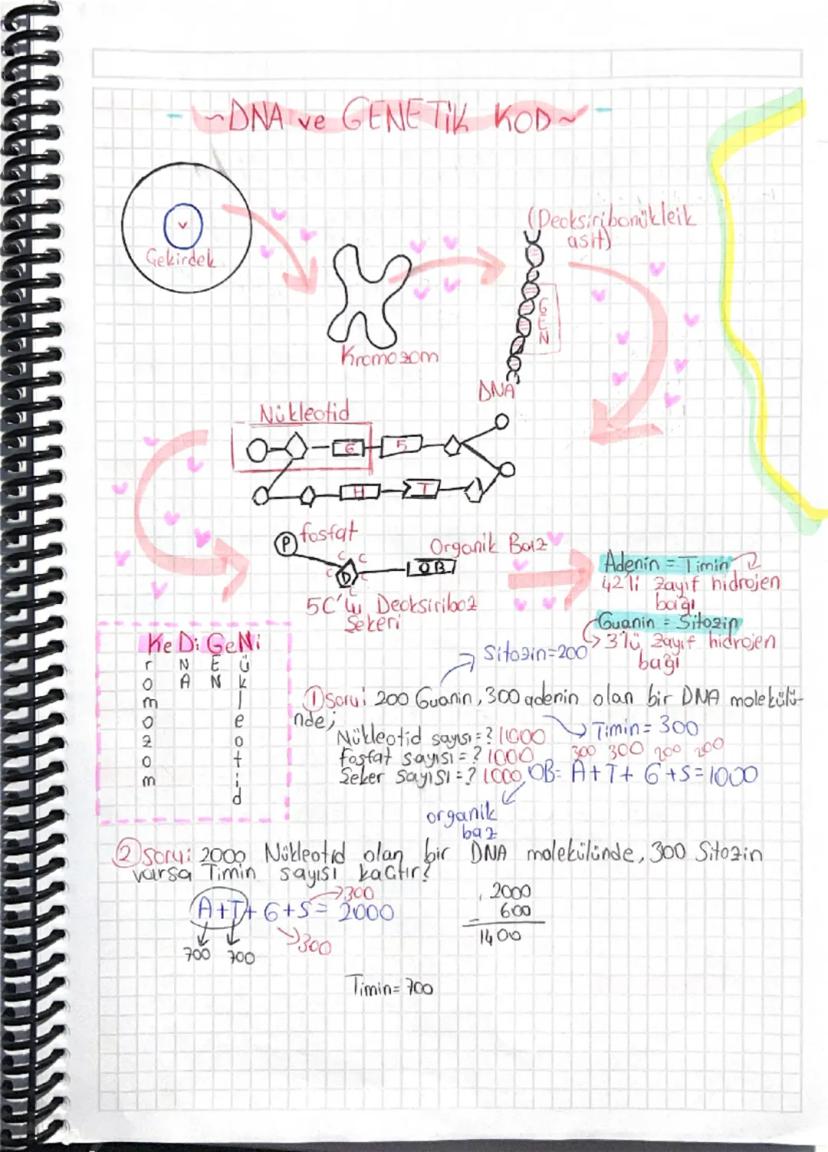 ~DNA ve GENETİK KOD~
Çekirdek
Kromozom
(Deoksiribonükleik
asit)
G
E
N
DNA
Nükleotid
G S
A T
P fosfat
Organik Baz
C C
C D C
C
OB
5C'lu Deoksiriboz
Şekeri
Adenin = Timin
2'li zayıf hidrojen
bağı
Guanin = Sitozin
3'lü zayıf hidrojen
bağı
KeDi GeNi
r N E ü
o A N k
m l
o e
z o
o t
m i
d
Sitozin=200
① Soru: 200 Guanin, 300 adenin olan bir DNA molekülü-
nde;
Timin = 300
Nükleotid sayısı=? 1000
Fosfat sayısı=? 1000
300 300 200 200
Şeker sayısı=? 1000
OB= A+T+ G+S=1000
organik
baz
② Soru: 2000 Nükleotid olan bir DNA molekülünde, 300 Sitozin
varsa Timin sayısı kaçtır?
300
A+T+ G+S= 2000
300
700 700
2000
- 600
1400
Timin= 700